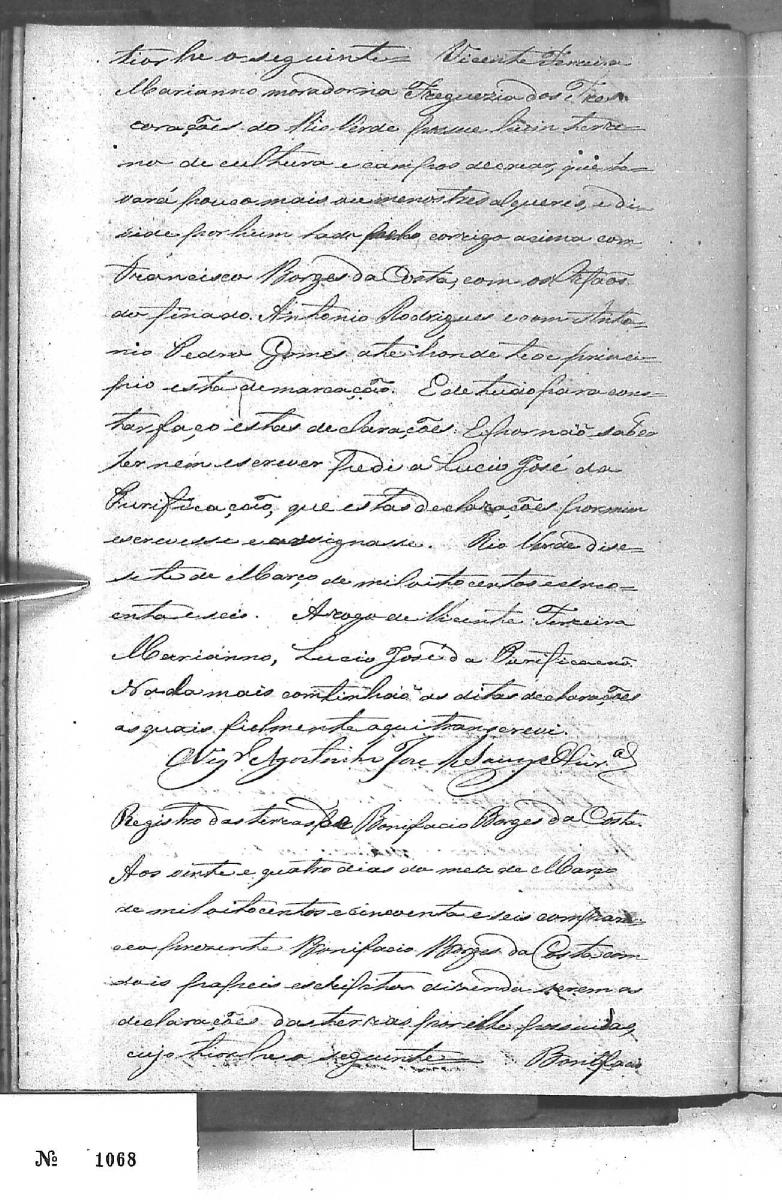 tior he o seguinte = Vicente Ferreira
Marianno morador na Freguezia dos Tres
corações do Rio Verde possue hum terre-
no de cultura e campos de crear, que le-
vará pouco mais ou menos tres alqueres, e di-
vide por hum lado pelo corrigo asima com
Francisco Borges da Costa, com os
do finado Antonio Rodrigues e com Anto-
nio Pedro Gomes athe honde teve princi-
pio esta demarcação. E de tudo para cons-
tar faço estas declarações. E por não saber
ler nem escrever pedi a Lucio José da
Purificação, que estas declarações por mim
escrevesse e assignasse. Rio Verde dise-
sete de Março de mil oito centos e sinco-
enta e seis. A rogo de Vicente Ferreira
Marianno, Lucio José da Purificacaõ.
Nada mais continhaõ as ditas declarações
as quais fielmente aqui transcrevi.
O Vigr.º Agostinho José de Souza Olivr.ª
Registro das terras de Bonifacio Borges da Costa.
Aos vinte e quatro dias do mez de Março
de mil oito centos e cincoenta e seis compare-
ceo prezente Bonifacio Borges da Costa com
dois papeis escriptos dizendo serem as
declarações das terras por elle possuidas,
cujo tior he o seguinte = Bonifacio
Nº 1068